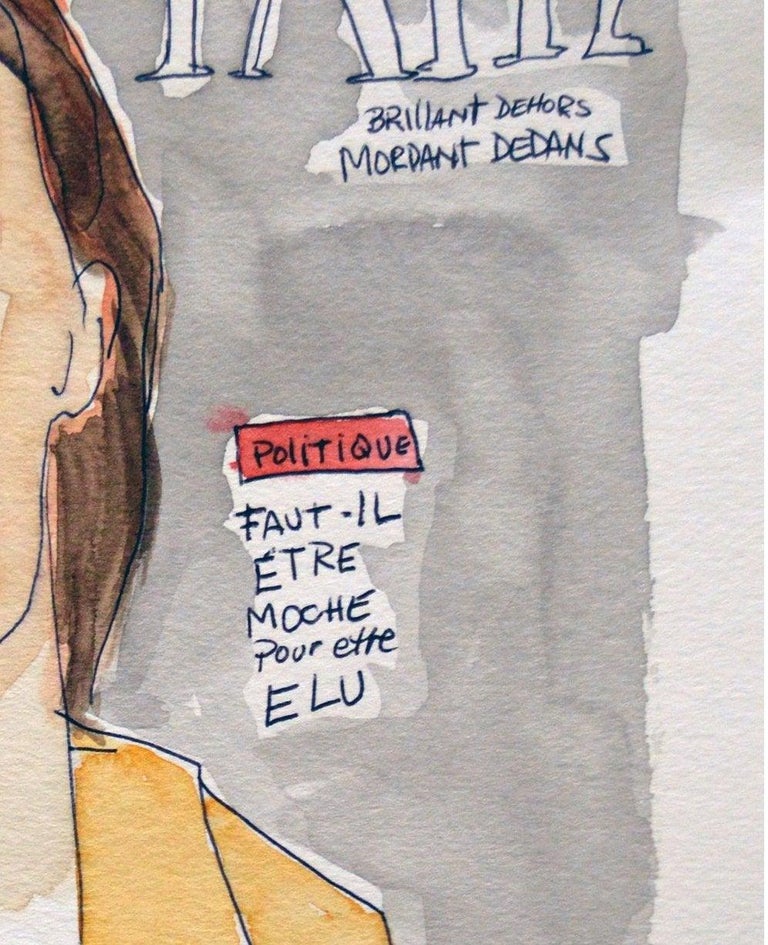 BRILLANT DEHORS
MORDANT DEDANS
POLITIQUE
FAUT-IL
ÊTRE
MOCHE
Pour etre
ELU